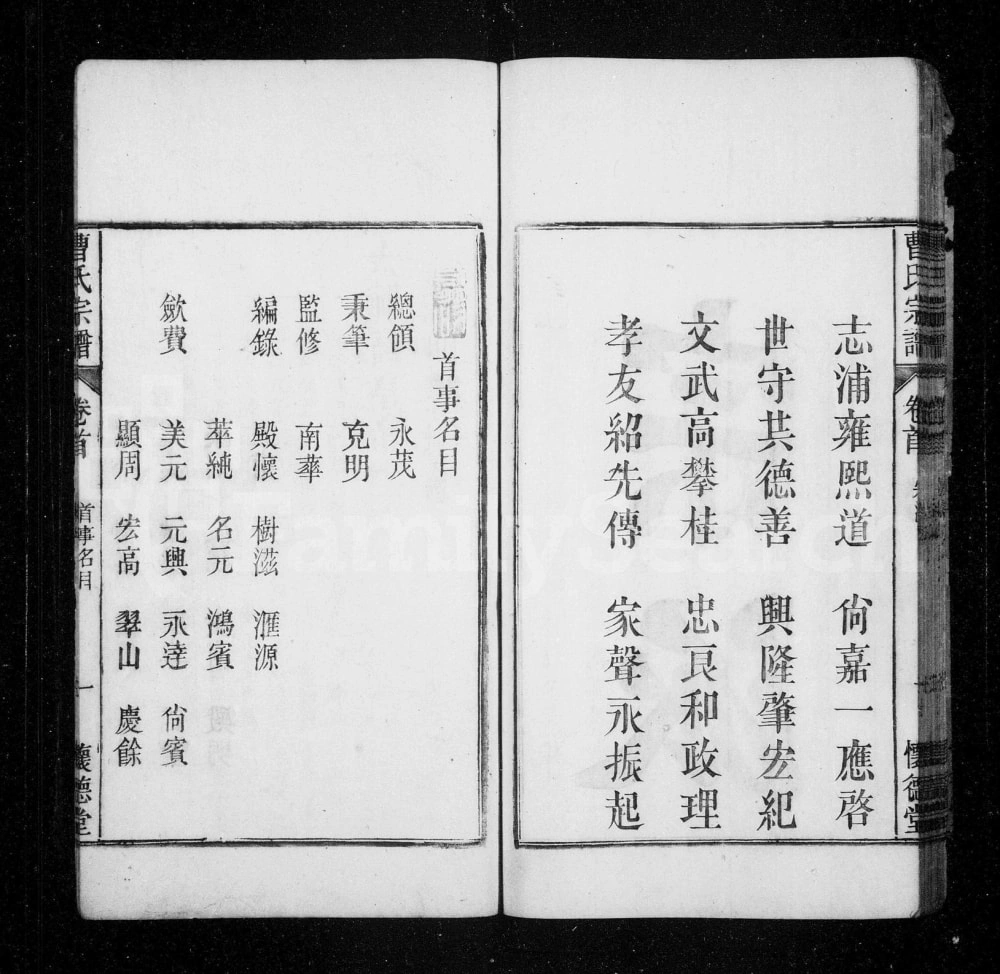 曹氏宗譜 卷首 一 懷德堂
志浦雍熙道 尙嘉一應啓
世守共德善 興隆肇宏紀
文武高攀桂 忠良和政理
孝友紹先傳 家聲永振起
首事名目
總領 永茂
秉筆 克明
監修 南華
編錄 殿懷 樹滋 滙源
萃純 名元 鴻賓
歛費 美元 元興 永達 尙賓
顯周 宏高 翠山 慶餘
曹氏宗譜 卷首 首事名目 一 懷德堂
FamilySearch